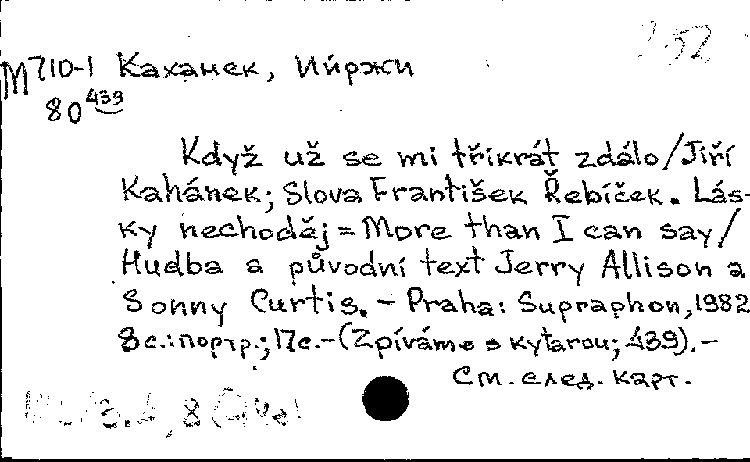 М710-1 Каханек, Йиржи
80 439
Když už se mi tříkrát zdálo/Jiří
Kahánek; Slova František Řebíček. Lás-
ky nechoděj = More than I can say/
Hudba a původní text Jerry Allison a
Sonny Curtis. - Praha: Supraphon, 1982
8 с.: портр.; 17 с. - (Zpíváme s kytarou; 439). -
См. след. карт.